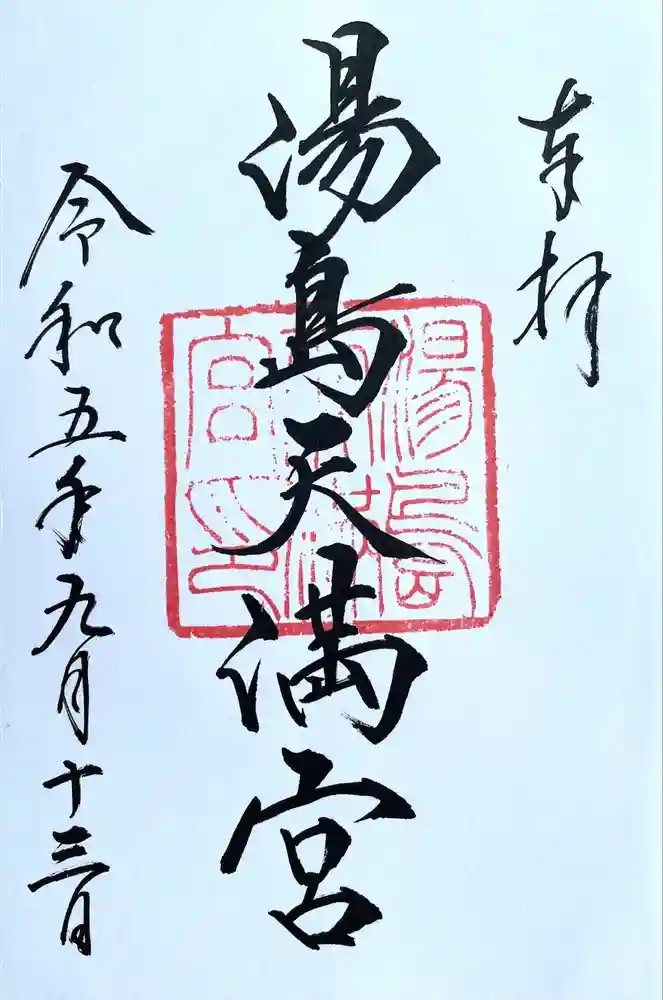 奉拝
湯島天満宮
湯島天満宮印
令和五年九月十三日